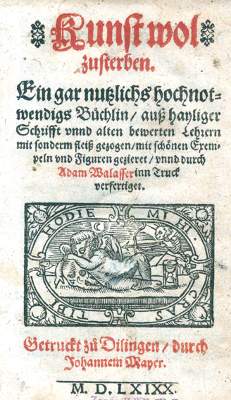 Kunst wol
zusterben.
Ein gar nutzlichs hochnot-
wendigs Büchlin / auß hayliger
Schrifft vnnd alten bewerten Lehrern
mit sonderm fleiß gezogen / mit schönen Exem-
peln vnd Figuren gezieret / vnnd durch
Adam Walasser inn Truck
verfertiget.
HODIE MIHI
CRAS TIBI
Getruckt zů Dilingen / durch
Johannem Mayer.
M. D. LXIXX.